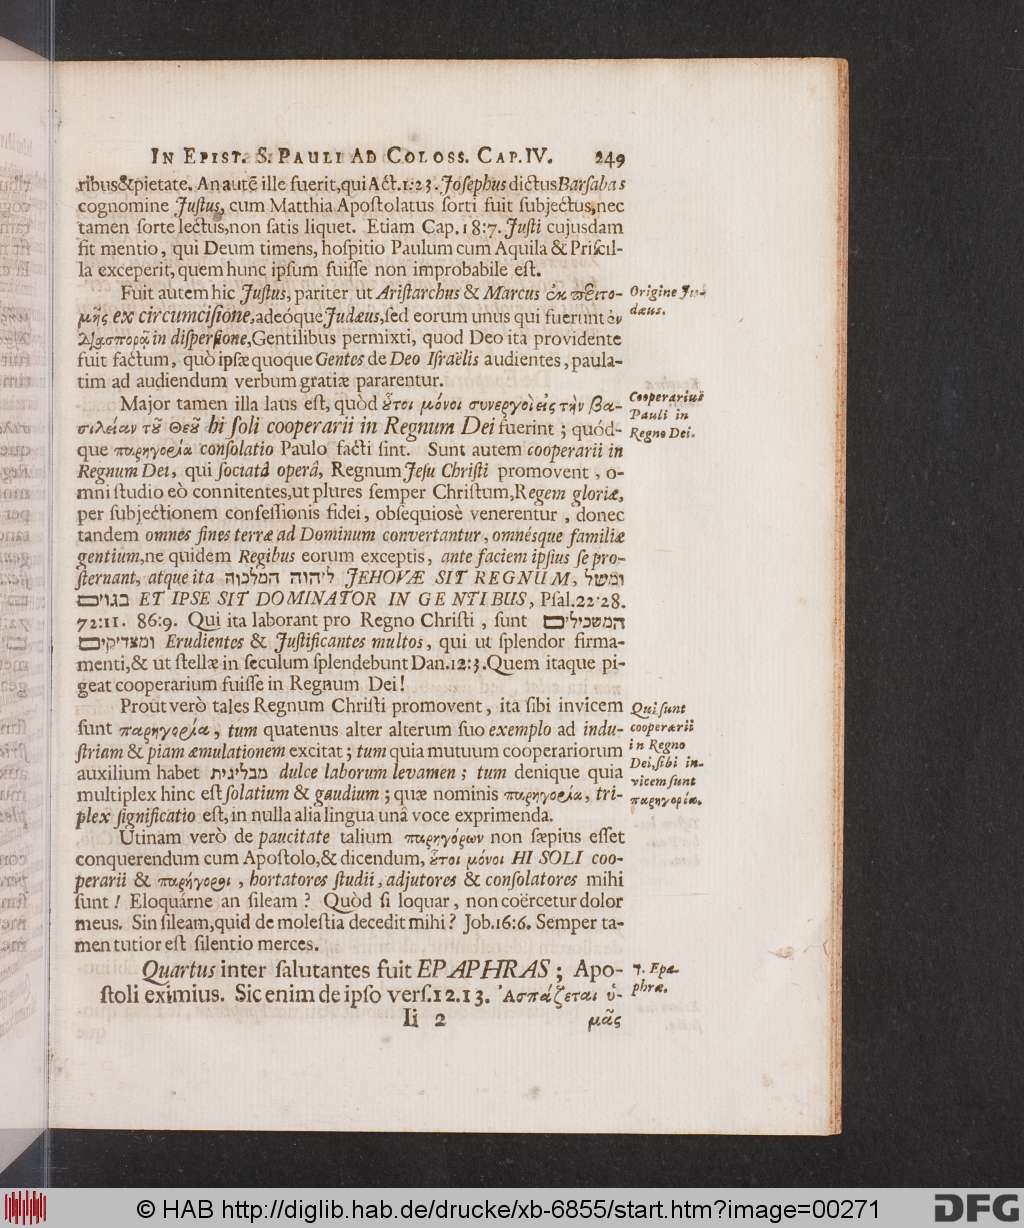 IN EPIST. S. PAULI AD COLOSS. CAP. IV. 249
ribus & pietate. An autē ille fuerit, qui Act. 1:23. Joſephus dictus Barſabas
cognomine Juſtus, cum Matthia Apoſtolatus ſorti fuit ſubjectus, nec
tamen ſorte lectus, non ſatis liquet. Etiam Cap. 18:7. Juſti cujusdam
fit mentio, qui Deum timens, hoſpitio Paulum cum Aquila & Priſcil-
la exceperit, quem hunc ipſum fuiſſe non improbabile eſt.
Fuit autem hic Juſtus, pariter ut Ariſtarchus & Marcus ἐκ περιτο-
Origine Ju-
μῆς ex circumciſione, adeóque Judæus, ſed eorum unus qui fuerunt ἐν
dæus.
Διασπορᾷ in diſperſione, Gentilibus permixti, quod Deo ita providente
fuit factum, quò ipſæ quoque Gentes de Deo Iſraëlis audientes, paula-
tim ad audiendum verbum gratiæ pararentur.
Major tamen illa laus eſt, quòd ȣ̃τοι μόνοι συνεργοὶ εἰς τὴν βα-
Cooperarius
σιλείαν τȣ̃ Θεȣ̃ hi ſoli cooperarii in Regnum Dei fuerint; quód-
Pauli in
que παρηγορία conſolatio Paulo facti ſint. Sunt autem cooperarii in
Regno Dei.
Regnum Dei, qui ſociatâ operâ, Regnum Jeſu Chriſti promovent, o-
mni ſtudio eò connitentes, ut plures ſemper Chriſtum, Regem gloriæ,
per ſubjectionem confeſſionis fidei, obſequiosè venerentur, donec
tandem omnes fines terræ ad Dominum convertantur, omnésque familiæ
gentium, ne quidem Regibus eorum exceptis, ante faciem ipſius ſe pro-
ſternant, atque ita ליהוה המלכוה JEHOVÆ SIT REGNUM, ומשל
בגוים ET IPSE SIT DOMINATOR IN GENTIBUS, Pſal. 22:28.
72:11. 86:9. Qui ita laborant pro Regno Chriſti, ſunt המשכילים
ומצדיקים Erudientes & Juſtificantes multos, qui ut ſplendor firma-
menti, & ut ſtellæ in ſeculum ſplendebunt Dan. 12:3. Quem itaque pi-
geat cooperarium fuiſſe in Regnum Dei!
Prout verò tales Regnum Chriſti promovent, ita ſibi invicem
Qui ſunt
ſunt παρηγορία, tum quatenus alter alterum ſuo exemplo ad indu-
cooperarii
ſtriam & piam æmulationem excitat; tum quia mutuum cooperariorum
in Regno
auxilium habet מבליגית dulce laborum levamen; tum denique quia
Dei, ſibi in-
vicem ſunt
multiplex hinc eſt ſolatium & gaudium; quæ nominis παρηγορία, tri-
παρηγορία.
plex ſignificatio eſt, in nulla alia lingua unâ voce exprimenda.
Utinam verò de paucitate talium παρηγόρων non ſæpius eſſet
conquerendum cum Apoſtolo, & dicendum, ȣ̃τοι μόνοι HI SOLI coo-
perarii & παρήγοροι, hortatores ſtudii, adjutores & conſolatores mihi
ſunt! Eloquárne an ſileam? Quòd ſi loquar, non coërcetur dolor
meus. Sin ſileam, quid de moleſtia decedit mihi? Job. 16:6. Semper ta-
men tutior eſt ſilentio merces.
Quartus inter ſalutantes fuit EPAPHRAS; Apo-
7. Epa-
ſtoli eximius. Sic enim de ipſo verſ. 12. 13. Ἀσπάζεται ὑ-
phræ.
Ii 2 μᾶς
© HAB http://diglib.hab.de/drucke/xb-6855/start.htm?image=00271
DFG